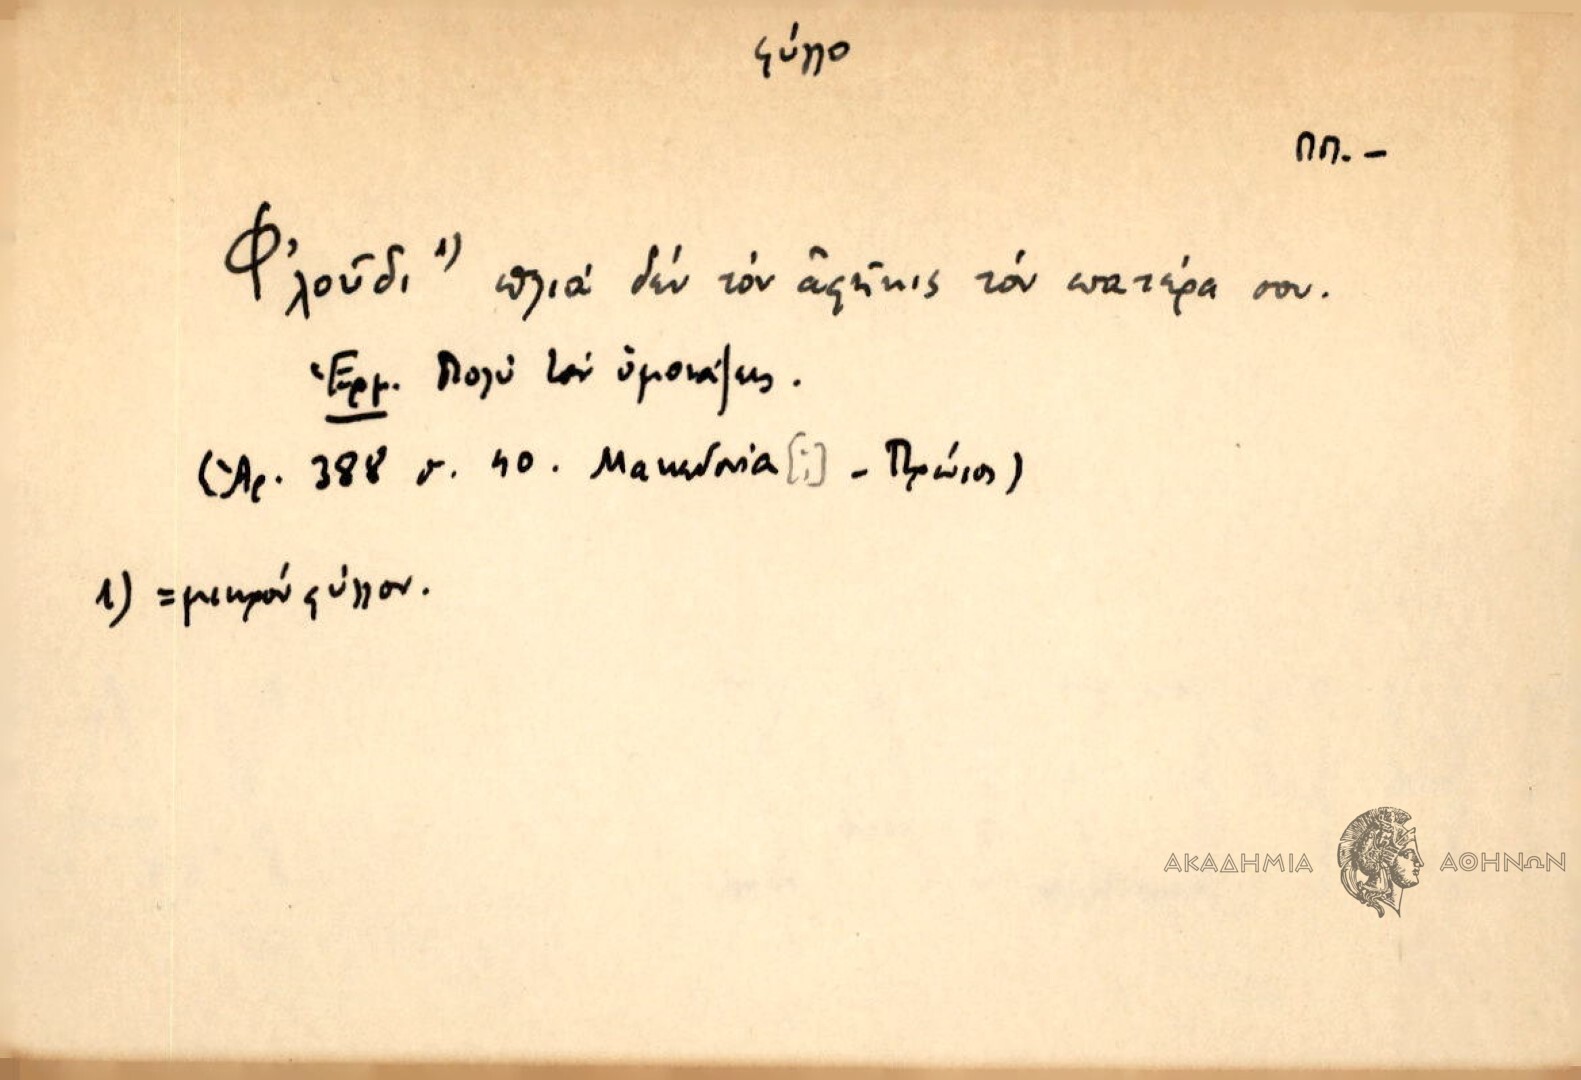 φύλλο
ΠΠ. -
Φ'λούδι 1) πλιά δέν τόν ἄφηκις τόν πατέρα σου.
Ἑρμ. Πολύ τοῦ ὁμοιάζεις.
(Ἀρ. 388 σ. 40. Μακεδονία [;] - Πρώιος)
1) = μικρόν φύλλον.
ΑΚΑΔΗΜΙΑ ΑΘΗΝΩΝ